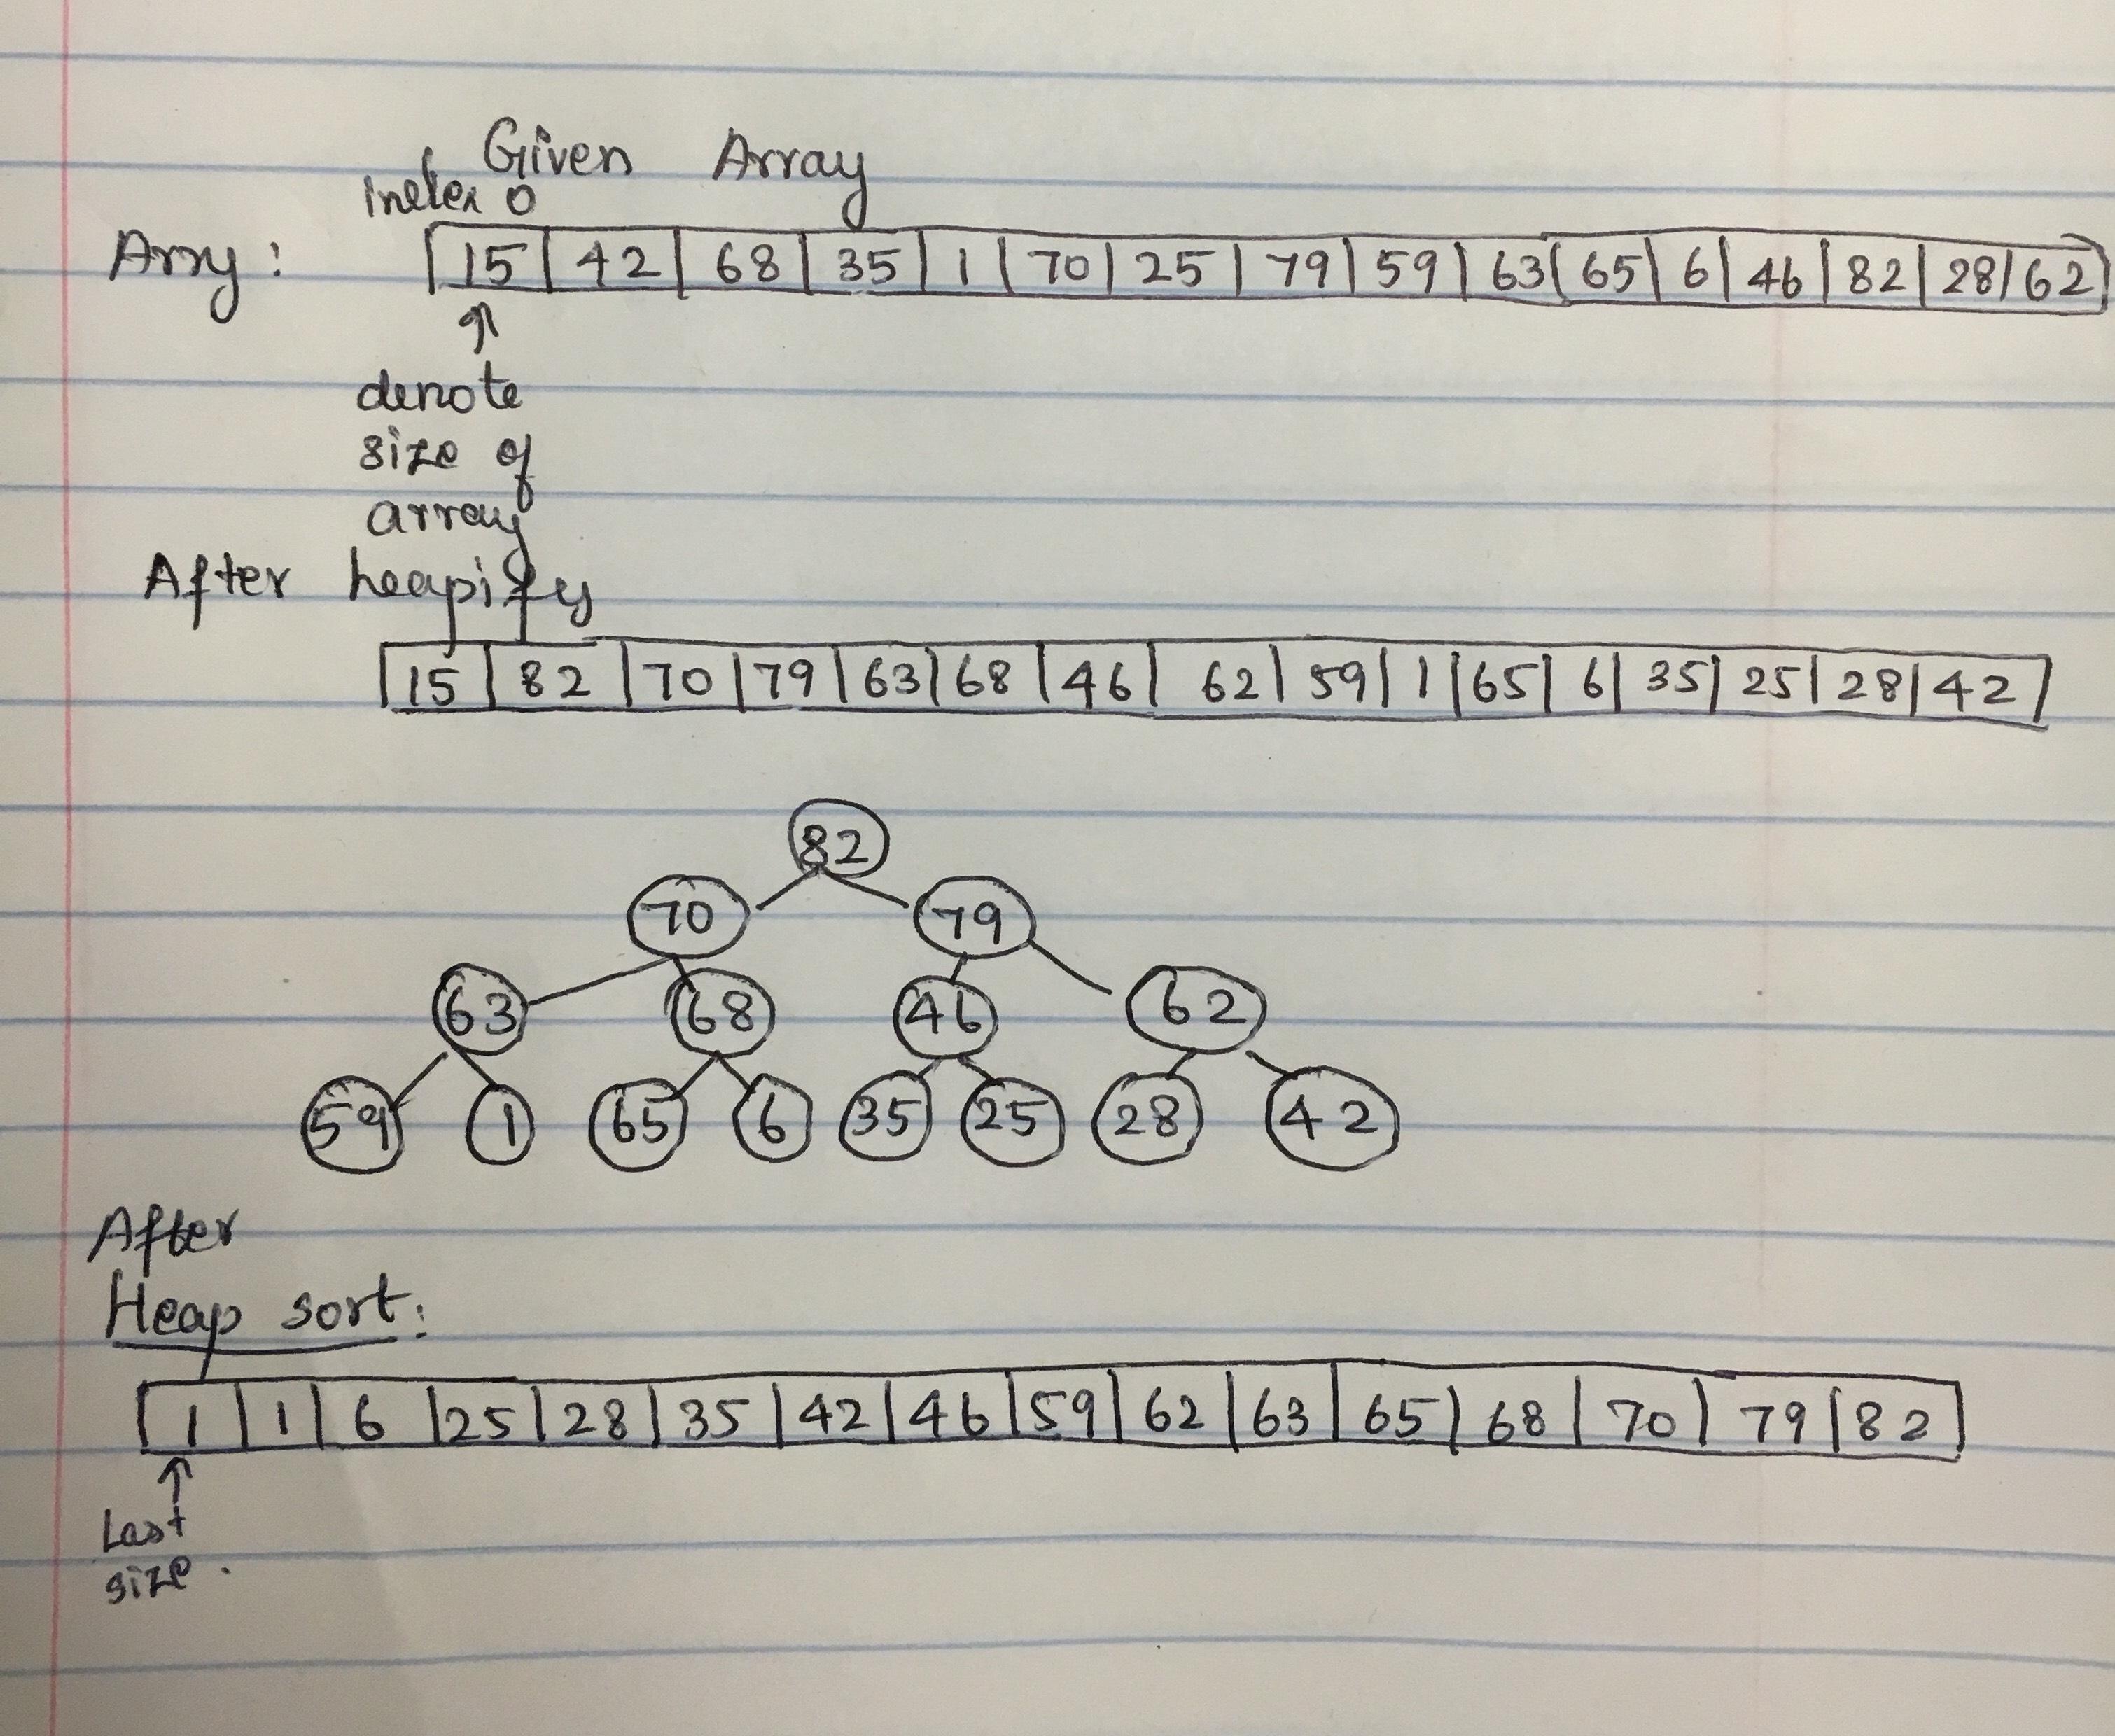 Given Array
index 0
Arry: 15 42 68 35 1 70 25 79 59 63 65 6 46 82 28 62
denote
size of
array
After heapify
15 82 70 79 63 68 46 62 59 1 65 6 35 25 28 42
82
70 79
63 68 46 62
59 1 65 6 35 25 28 42
After
Heap sort:
1 1 6 25 28 35 42 46 59 62 63 65 68 70 79 82
Last
size.